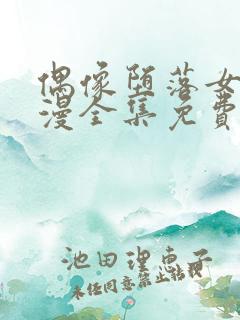 偶像堕落女
漫全集免費
池田理恵子
未任同意禁止转载